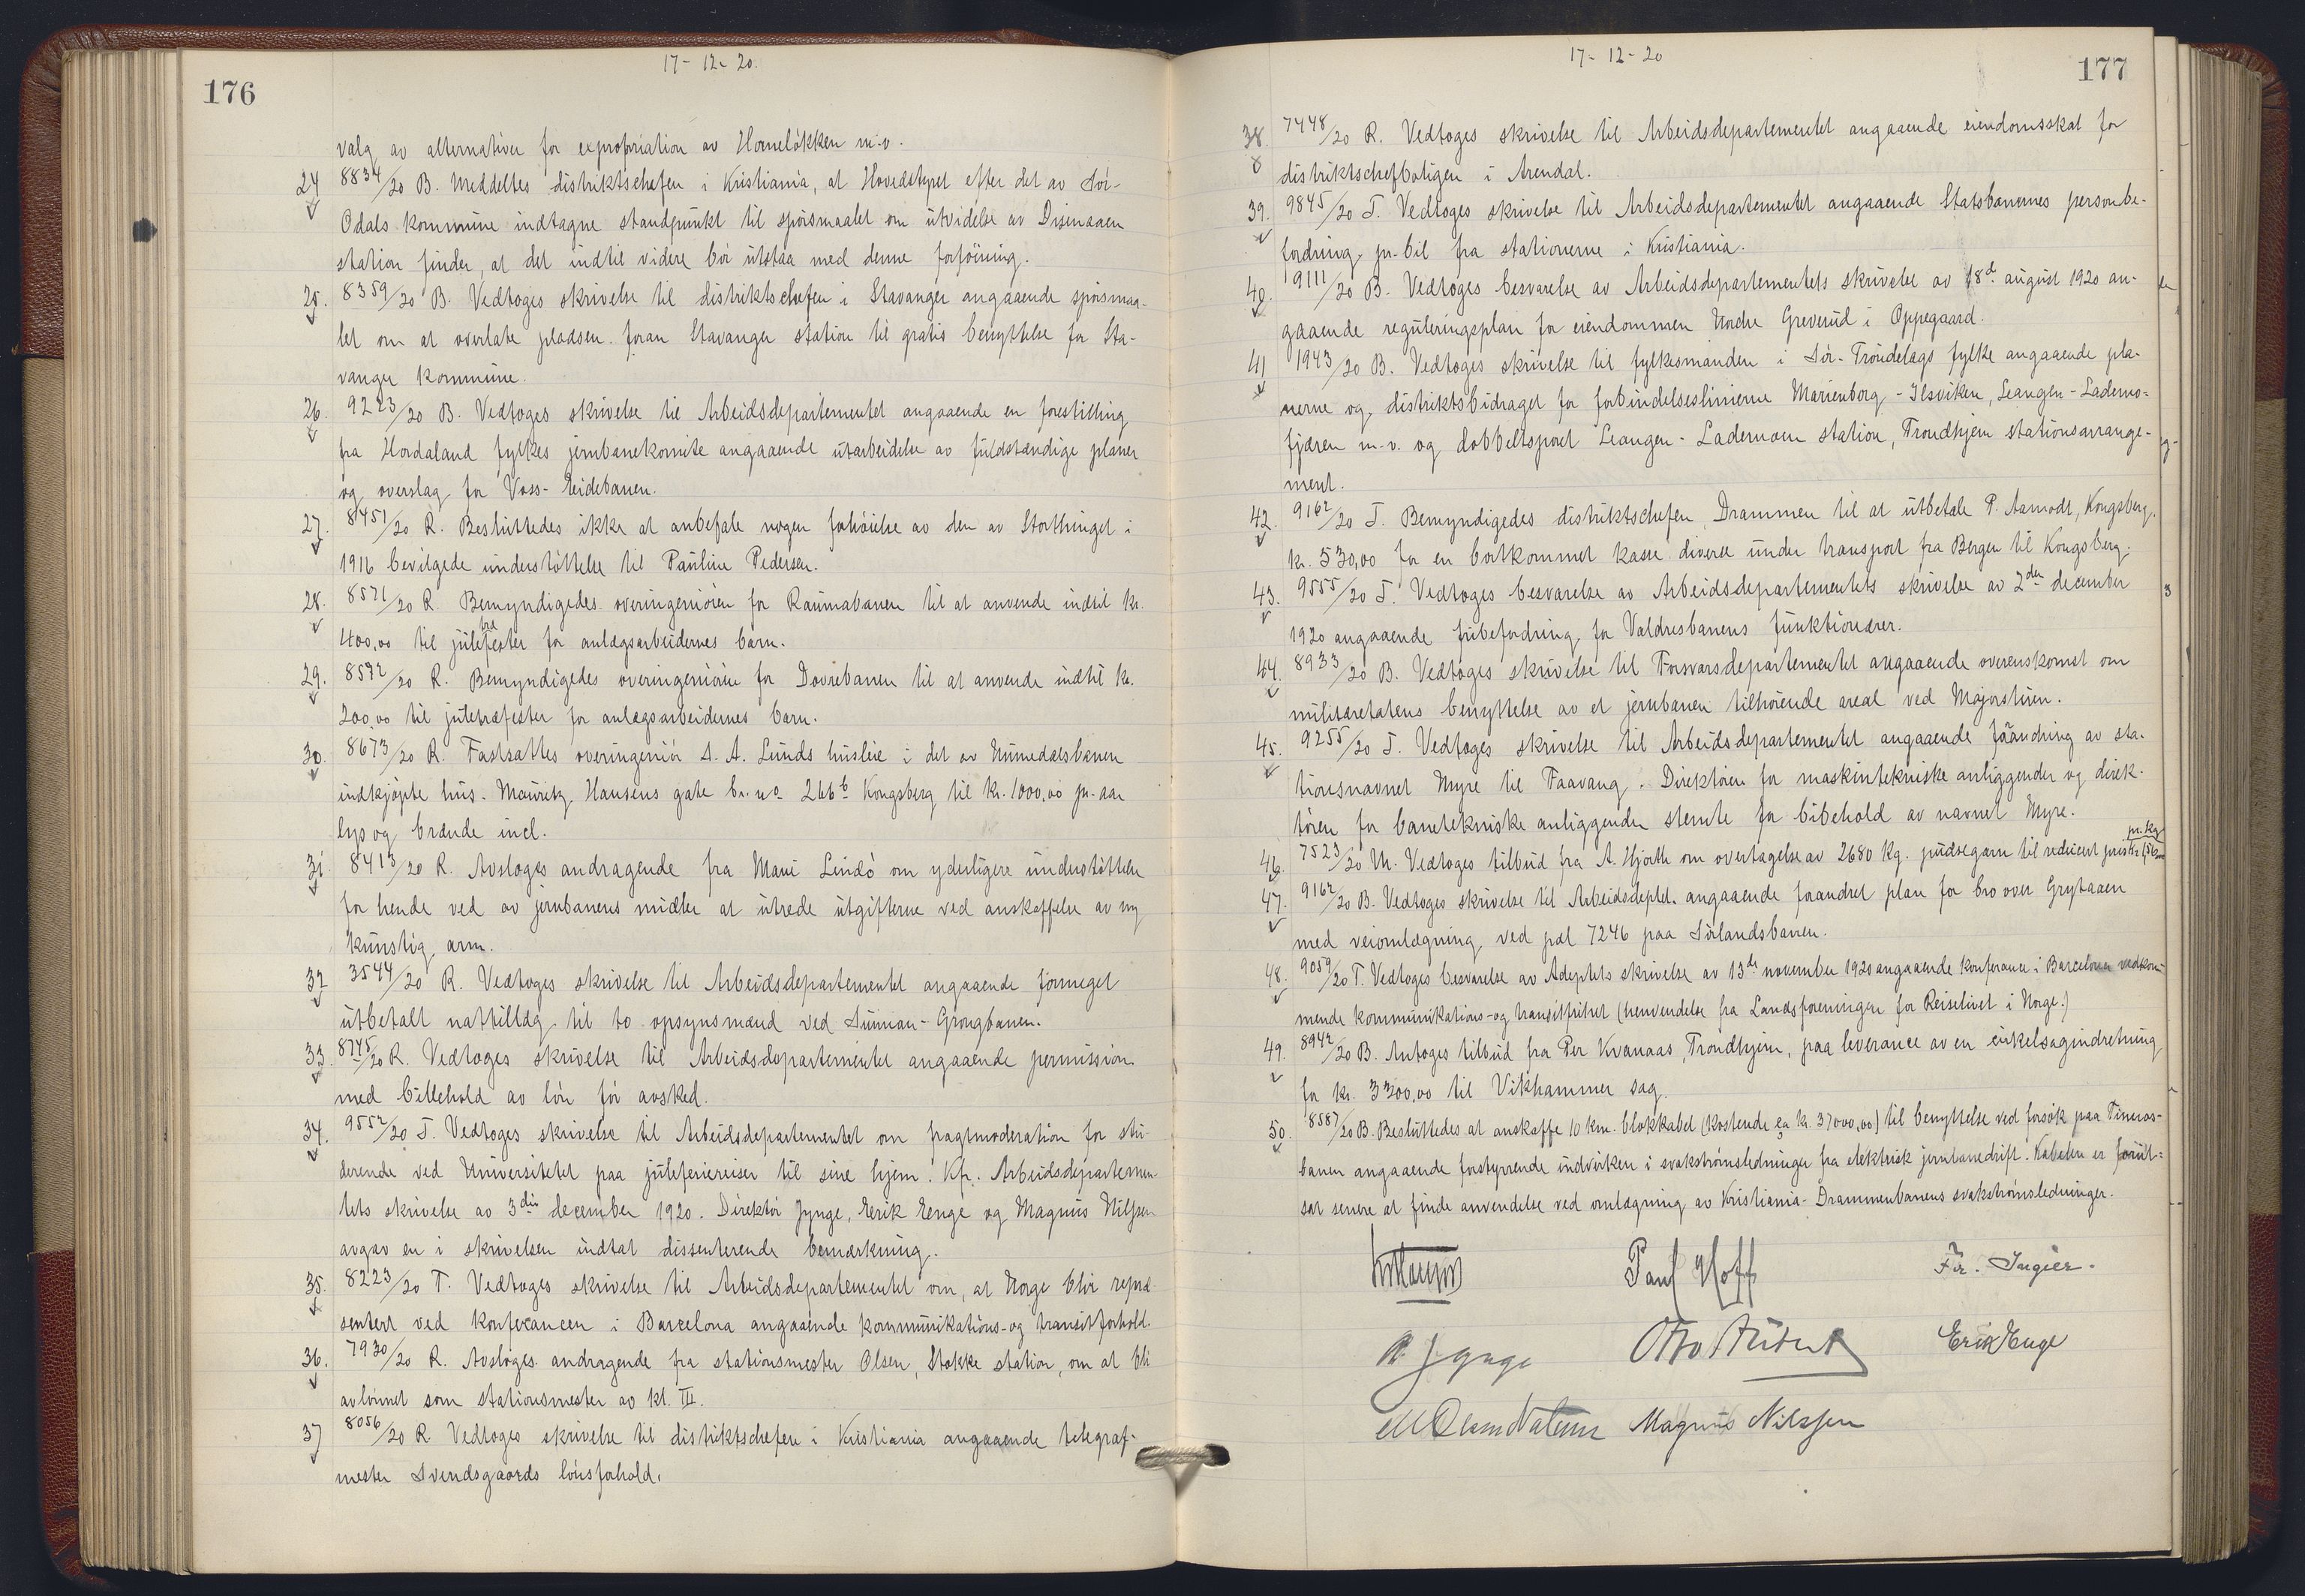 176
17-12-20.
valg av alternativer for expropriation av Horneløkken m.v.
24 8834/20 B. Meddeltes distriktschefen i Kristiania, at Hovedstyret efter det av Sör-
Odals kommune indtagne standpunkt til spörsmaalet om utvidelse av Disenaaen
station finder, at det indtil videre bör utstaa med denne forföining.
25. 8359/20 B. Vedtoges skrivelse til distriktschefen i Stavanger angaaende spörsmaa-
let om at overlate pladsen foran Stavanger station til gratis benyttelse for Sta-
vanger kommune.
26. 9223/20 B. Vedtoges skrivelse til Arbeidsdepartementet angaaende en forestilling
fra Hordaland fylkes jernbanekomite angaaende utarbeidelse av fuldstændige planer
og overslag for Voss-Eidebanen.
27. 8451/20 R. Besluttedes ikke at anbefale nogen forhöielse av den av Storthinget i
1916 bevilgede understöttelse til Pauline Pedersen.
28. 8571/20 R. Bemyndigedes overingeniören for Raumabanen til at anvende indtil kr.
400,00 til juletræfester for anlægsarbeidernes barn.
29. 8592/20 R. Bemyndigedes overingeniören for Dovrebanen til at anvende indtil kr.
200,00 til juletræfester for anlægsarbeidernes barn.
30. 8673/20 R. Fastsattes overingeniör S. A. Lunds husleie i det av Numedalsbanen
indkjöpte hus. Mauritz Hansens gate br. no 266b Kongsberg til kr. 1000,00 pr. aar
lys og brænde incl.
31. 8413/20 R. Avsloges andragende fra Marie Lindö om yderligere understöttelse
for hende ved av jernbanens midler at utrede utgifterne ved anskaffelse av ny
kunstig arm.
32 3544/20 R. Vedtoges skrivelse til Arbeidsdepartementet angaaende formeget
utbetalt nattillæg til to opsynsmænd ved Sunnan-Grongbanen.
33. 8745/20 R. Vedtoges skrivelse til Arbeidsdepartementet angaaende permission
med bibehold av lön för avsked.
34. 9552/20 T. Vedtoges skrivelse til Arbeidsdepartementet om fragtmoderation for stu-
derende ved Universitetet paa juleferiereiser til sine hjem. Kfr. Arbeidsdepartemen-
tets skrivelse av 3die december 1920. Direktör Jynge, Erik Enge og Magnus Nilssen
avgav en i skrivelsen indtat dissenterende bemærkning.
35. 8223/20 T. Vedtoges skrivelse til Arbeidsdepartementet om, at Norge blir repræ
sentert ved konferancen i Barcelona angaaende kommunikations- og transitforhold.
36. 7930/20 R. Avsloges andragende fra stationsmester Olsen, Stokke station, om at bli
avlönnet som stationsmester av kl. III.
37 8056/20 R Vedtoges skrivelse til distriktschefen i Kristiania angaaende telegraf-
mester Svendsgaards lönsforhold.
177
17-12-20
38. 7448/20 R. Vedtoges skrivelse til Arbeidsdepartementet angaaende eiendomsskat for
distriktschefboligen i Arendal.
39. 9845/20 T. Vedtoges skrivelse til Arbeidsdepartementet angaaende Statsbanernes personbe-
fordring pr. bil fra stationerne i Kristiania.
40. 9111/20 B. Vedtoges besvarelse av Arbeidsdepartementets skrivelse av 18de august 1920 an-
gaaende reguleringsplan for eiendommen Nordre Greverud i Oppegaard.
41 1943/20 B. Vedtoges skrivelse til fylkesmanden i Sör-Tröndelags fylke angaaende pla-
nerne og distriktsbidraget for forbindelseslinierne Marienborg-Ilsviken, Leangen-Lademo-
fjæren m.v. og dobbeltsporet Leangen-Lademoen station, Trondhjem stationsarrange-
ment.
42. 9162/20 T. Bemyndigedes distriktschefen, Drammen til at utbetale P. Aamodt, Kongsberg,
kr. 530,00 for en bortkommet kasse diverse under transport fra Bergen til Kongsberg.
43. 9555/20 T. Vedtoges besvarelse av Arbeidsdepartementets skrivelse av 2den december
1920 angaaende fribefordring for Valdresbanens funktionærer.
44. 8933/20 B. Vedtoges skrivelse til Forsvarsdepartementet angaaende overenskomst om
militæretatens benyttelse av et jernbanen tilhörende areal ved Majorstuen.
45. 9255/20 T. Vedtoges skrivelse til Arbeidsdepartementet angaaende forandring av sta-
tionsnavnet Myre til Faavang. Direktören for maskintekniske anliggender og direk-
tören for banetekniske anliggender stemte for bibehold av navnet Myre.
46. 7523/20 M. Vedtoges tilbud fra A. Hjorth om overtagelse av 2680 kg. pudsegarn til reducert pris kr. pr. kg
47. 9162/20 B. Vedtoges skrivelse til Arbeidsdeptet. angaaende forandret plan for bro over Grytaaen
med veiomlægning ved pæl 7246 paa Sörlandsbanen.
48. 9059/20 T. Vedtoges besvarelse av Adeptets skrivelse av 13de november 1920 angaaende konferance i Barcelona vedkom-
mende kommunikations- og transitfrihet (henvendelse fra Landsforeningen for Reiselivet i Norge.)
49. 8942/20 B. Antoges tilbud fra Per Kvanaas, Trondhjem, paa leverance av en cirkelsagindretning
for kr. 3300,00 til Vikhammer sag.
50. 8587/20 B. Besluttedes at anskaffe 10 km. blokkabel (kostende ca kr. 37000,00) til benyttelse ved forsök paa Tinnos-
banen angaaende forstyrrende indvirken i svakströmsledninger fra elektrisk jernbanedrift. Kabelen er forut-
sat senere at finde anvendelse ved omlægning av Kristiania-Drammenbanens svakströmsledninger.
Paul Hoff
Fr. Ingier.
Jynge
Otto Aubert
Erik Enge
M Olsen Nalum
Magnus Nilssen